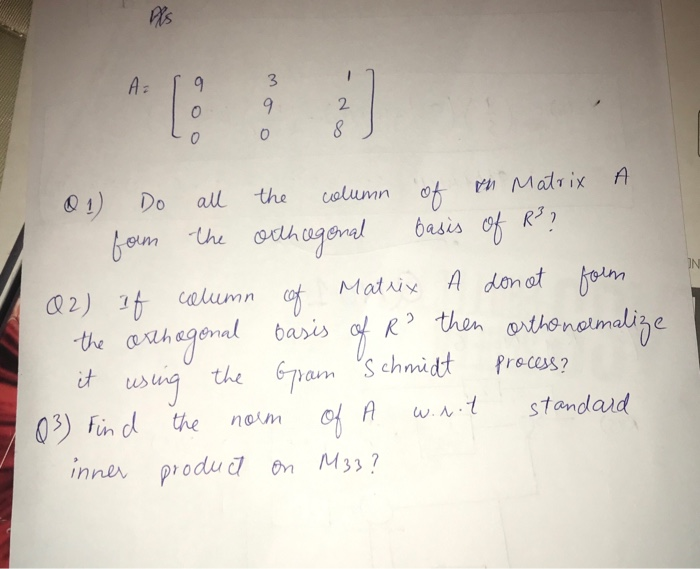 Pls
A = [ 9 3 1
0 9 2
0 0 8 ]
Q1) Do all the column of Matrix A
form the orthogonal basis of R³?
Q2) If column of Matrix A donot form
the orthogonal basis of R³ then orthonormalize
it using the Gram Schmidt Process?
Q3) Find the norm of A w.r.t standard
inner product on M33?